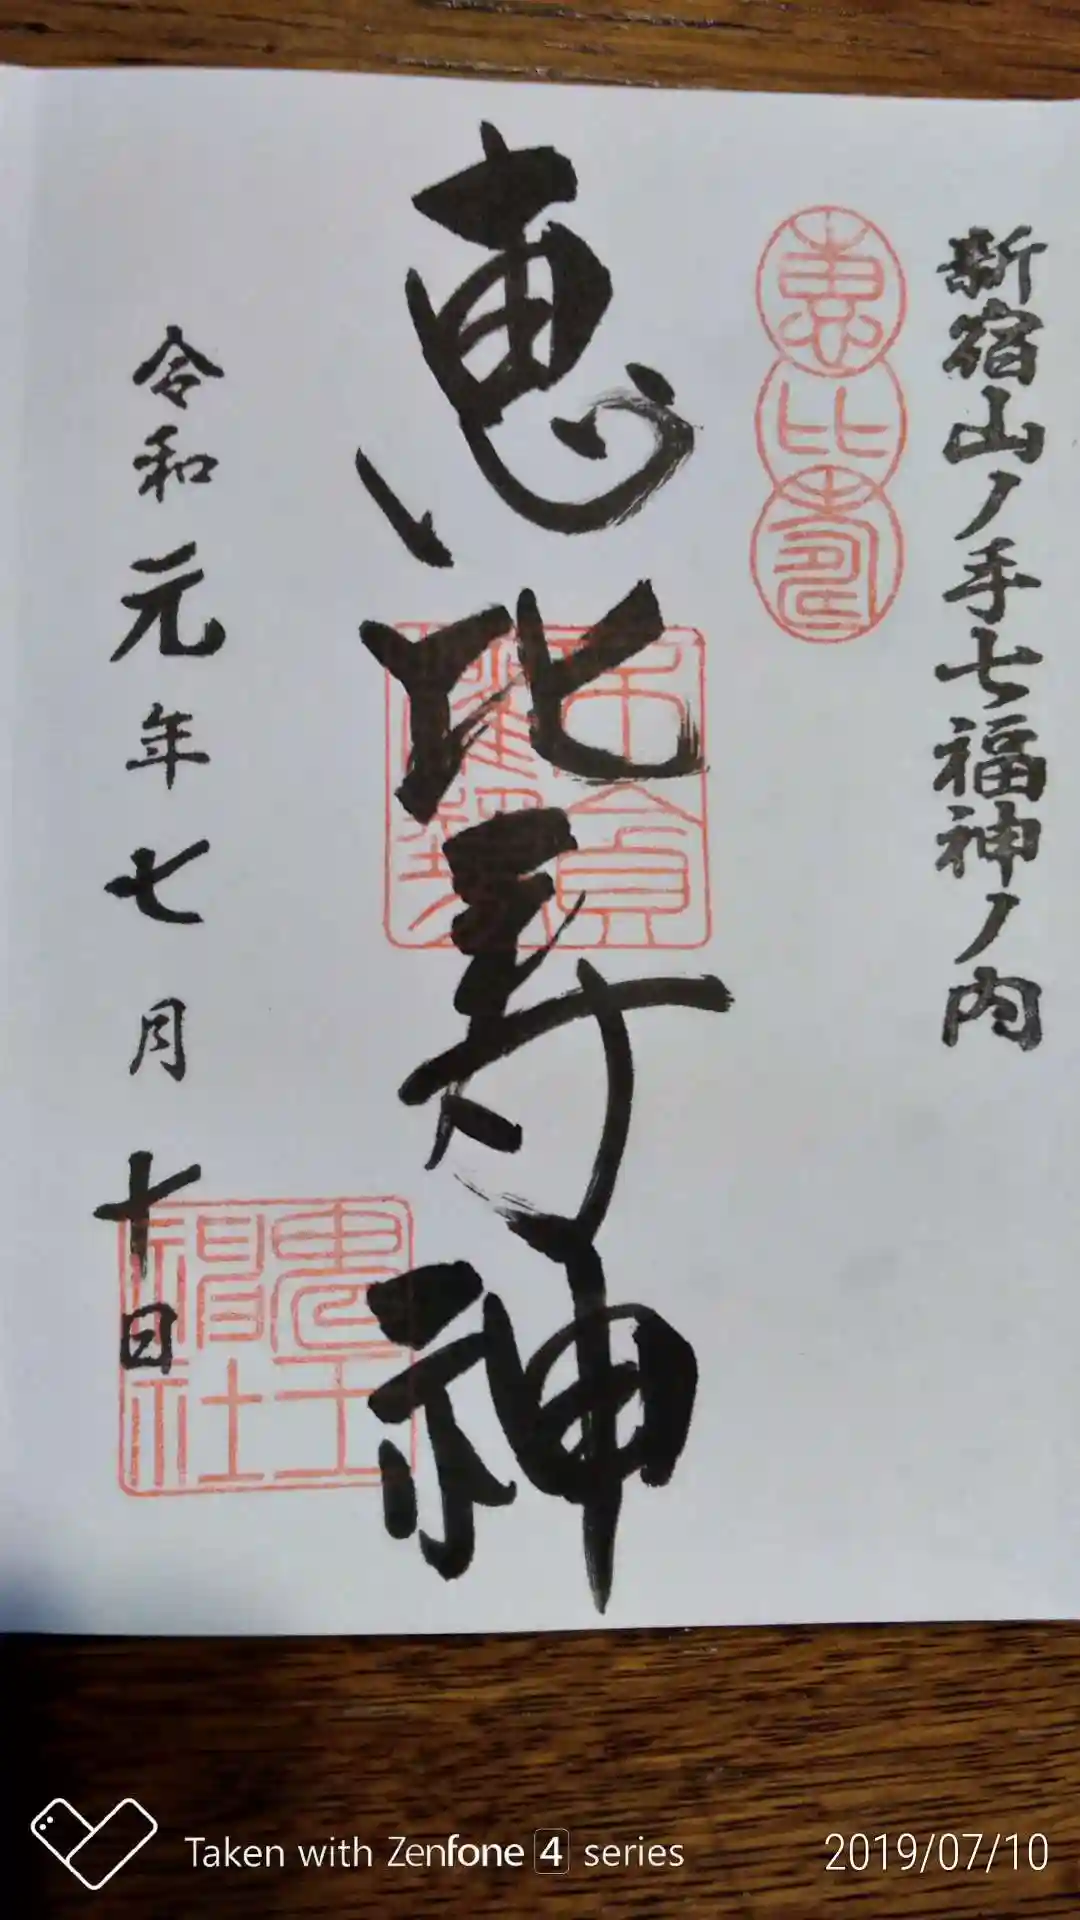 新宿山ノ手七福神ノ内
恵比寿
恵比寿神
令和元年七月十日
鬼王神社
Taken with Zenfone 4 series
2019/07/10